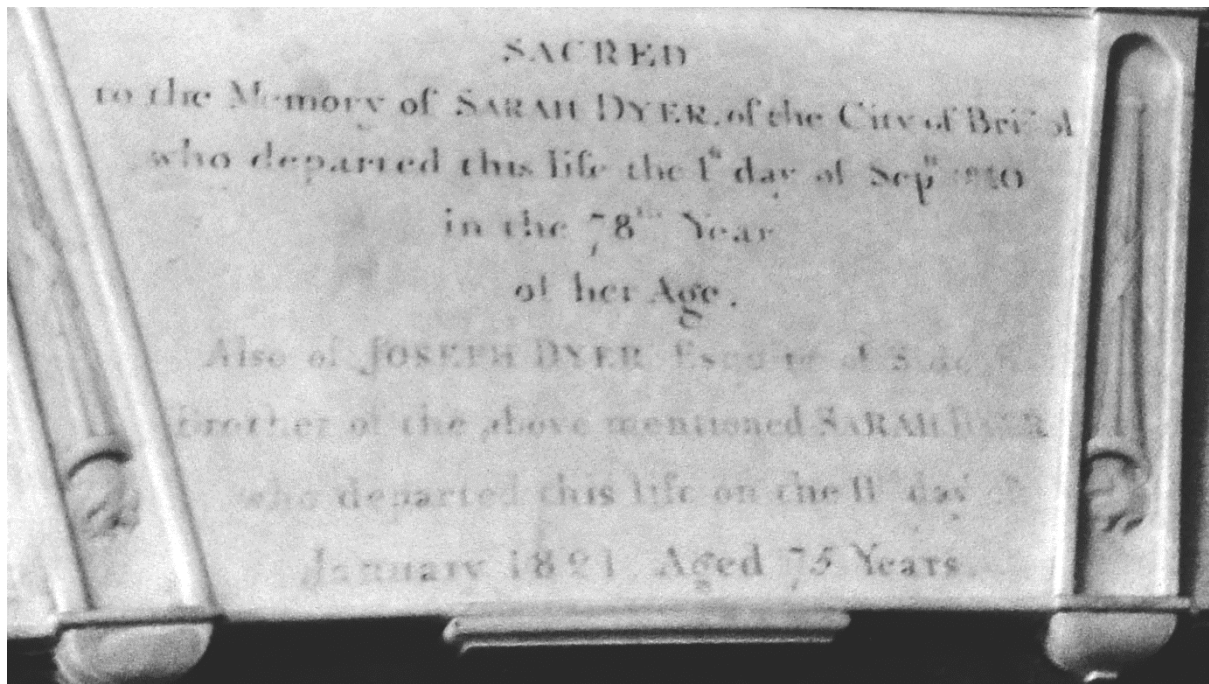 SACRED
to the Memory of SARAH DYER, of the City of Bristol
who departed this life the 1st day of Sepr
in the 78th Year
of her Age.
Also of JOSEPH DYER Esquire of
Brother of the above mentioned SARAH DYER
who departed this life on the 11th day of
January 1821 Aged 75 Years.